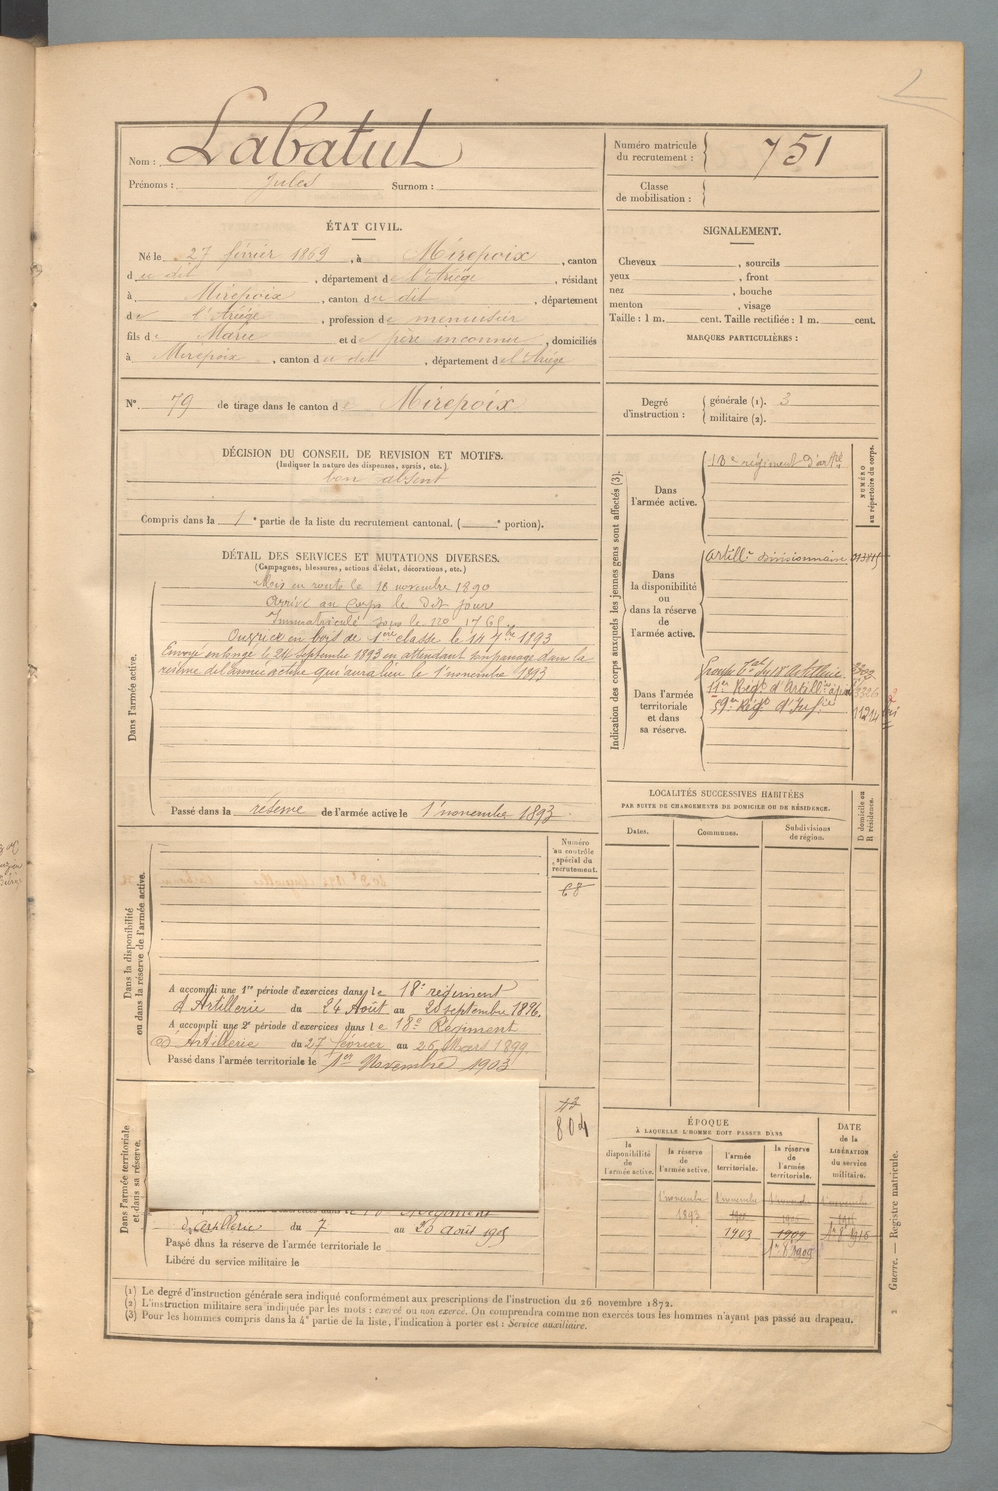 Nom : Labatut
Prénoms : Jules Surnom :
Numéro matricule
du recrutement : 751
Classe
de mobilisation :
ÉTAT CIVIL.
Né le 27 février 1869, à Mirepoix, canton
du dit, département de l'Ariége, résidant
à Mirepoix, canton du dit, département
de l'Ariége, profession de menuisier
fils de Marie et de père inconnu, domiciliés
à Mirepoix, canton du dit, département de l'Ariége
N° 79 de tirage dans le canton de Mirepoix
SIGNALEMENT.
Cheveux , sourcils
yeux , front
nez , bouche
menton , visage
Taille : 1 m. cent. Taille rectifiée : 1 m. cent.
MARQUES PARTICULIÈRES :
Degré
d'instruction :
générale (1). 3
militaire (2).
DÉCISION DU CONSEIL DE REVISION ET MOTIFS.
(Indiquer la nature des dispenses, sursis, etc.)
bon absent
Compris dans la 1e partie de la liste du recrutement cantonal. ( e portion).
DÉTAIL DES SERVICES ET MUTATIONS DIVERSES.
(Campagnes, blessures, actions d'éclat, décorations, etc.)
Dans l'armée active.
Mis en route le 16 novembre 1890
Arrivé au Corps le dit jour
Immatriculé sous le no 1768
Ouvrier en bois de 1ère classe le 14 7bre 1893
Envoyé en congé le 24 Septembre 1893 en attendant son passage dans la
réserve de l'armée active qui aura lieu le 1 novembre 1893
Passé dans la réserve de l'armée active le 1 novembre 1893
Indication des corps auxquels les jeunes gens sont affectés (3).
Dans
l'armée active.
18e régiment d'artie
NUMÉRO
au répertoire du corps.
Dans
la disponibilité
ou
dans la réserve
de
l'armée active.
Artillie divisionnaire
Dans l'armée
territoriale
et dans
sa réserve.
Groupe tal du 18e Artillerie
11e Régt d'Artillie à pied 3326
59e Régt d'Infie 11214 bis
LOCALITÉS SUCCESSIVES HABITÉES
PAR SUITE DE CHANGEMENTS DE DOMICILE OU DE RÉSIDENCE.
Dates.
Communes.
Subdivisions
de région.
D domicile ou
R résidence.
Dans la disponibilité
ou dans la réserve de l'armée active.
Numéro
au contrôle
spécial du
recrutement.
68
A accompli une 1re période d'exercices dans le 18e régiment
d'Artillerie du 24 Août au 20 septembre 1896.
A accompli une 2e période d'exercices dans le 18e Régiment
d'Artillerie du 27 février au 26 Mars 1899
Passé dans l'armée territoriale le 1er Novembre 1903
Dans l'armée territoriale
et dans sa réserve.
804
Régiment
d'artillerie du 7 au 20 Août 1905
Passé dans la réserve de l'armée territoriale le
Libéré du service militaire le
ÉPOQUE
À LAQUELLE L'HOMME DOIT PASSER DANS
la
disponibilité
de
l'armée active.
la réserve
de
l'armée active.
l'armée
territoriale.
la réserve
de
l'armée
territoriale.
DATE
de la
LIBÉRATION
du service
militaire.
1 novembre
1893
1 novembre
1903
1909
1er 8bre 1909
(1) Le degré d'instruction générale sera indiqué conformément aux prescriptions de l'instruction du 26 novembre 1872.
(2) L'instruction militaire sera indiquée par les mots : exercé ou non exercé. On comprendra comme non exercés tous les hommes n'ayant pas passé au drapeau.
(3) Pour les hommes compris dans la 4e partie de la liste, l'indication à porter est : Service auxiliaire.
Guerre. — Registre matricule.